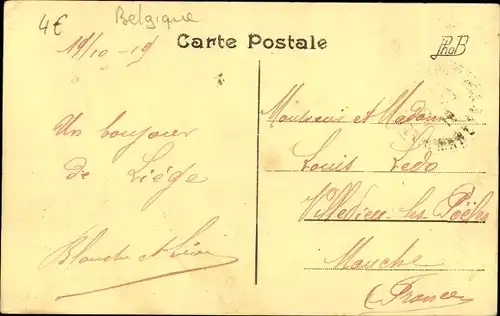 4€
Belgique
19/10-19
Carte Postale
PhoB
Un bonjour
de Liége
Blanche et Léon
Monsieur et Madame
Louis Ledo
Villedieu les Poëles
Manche
(France)